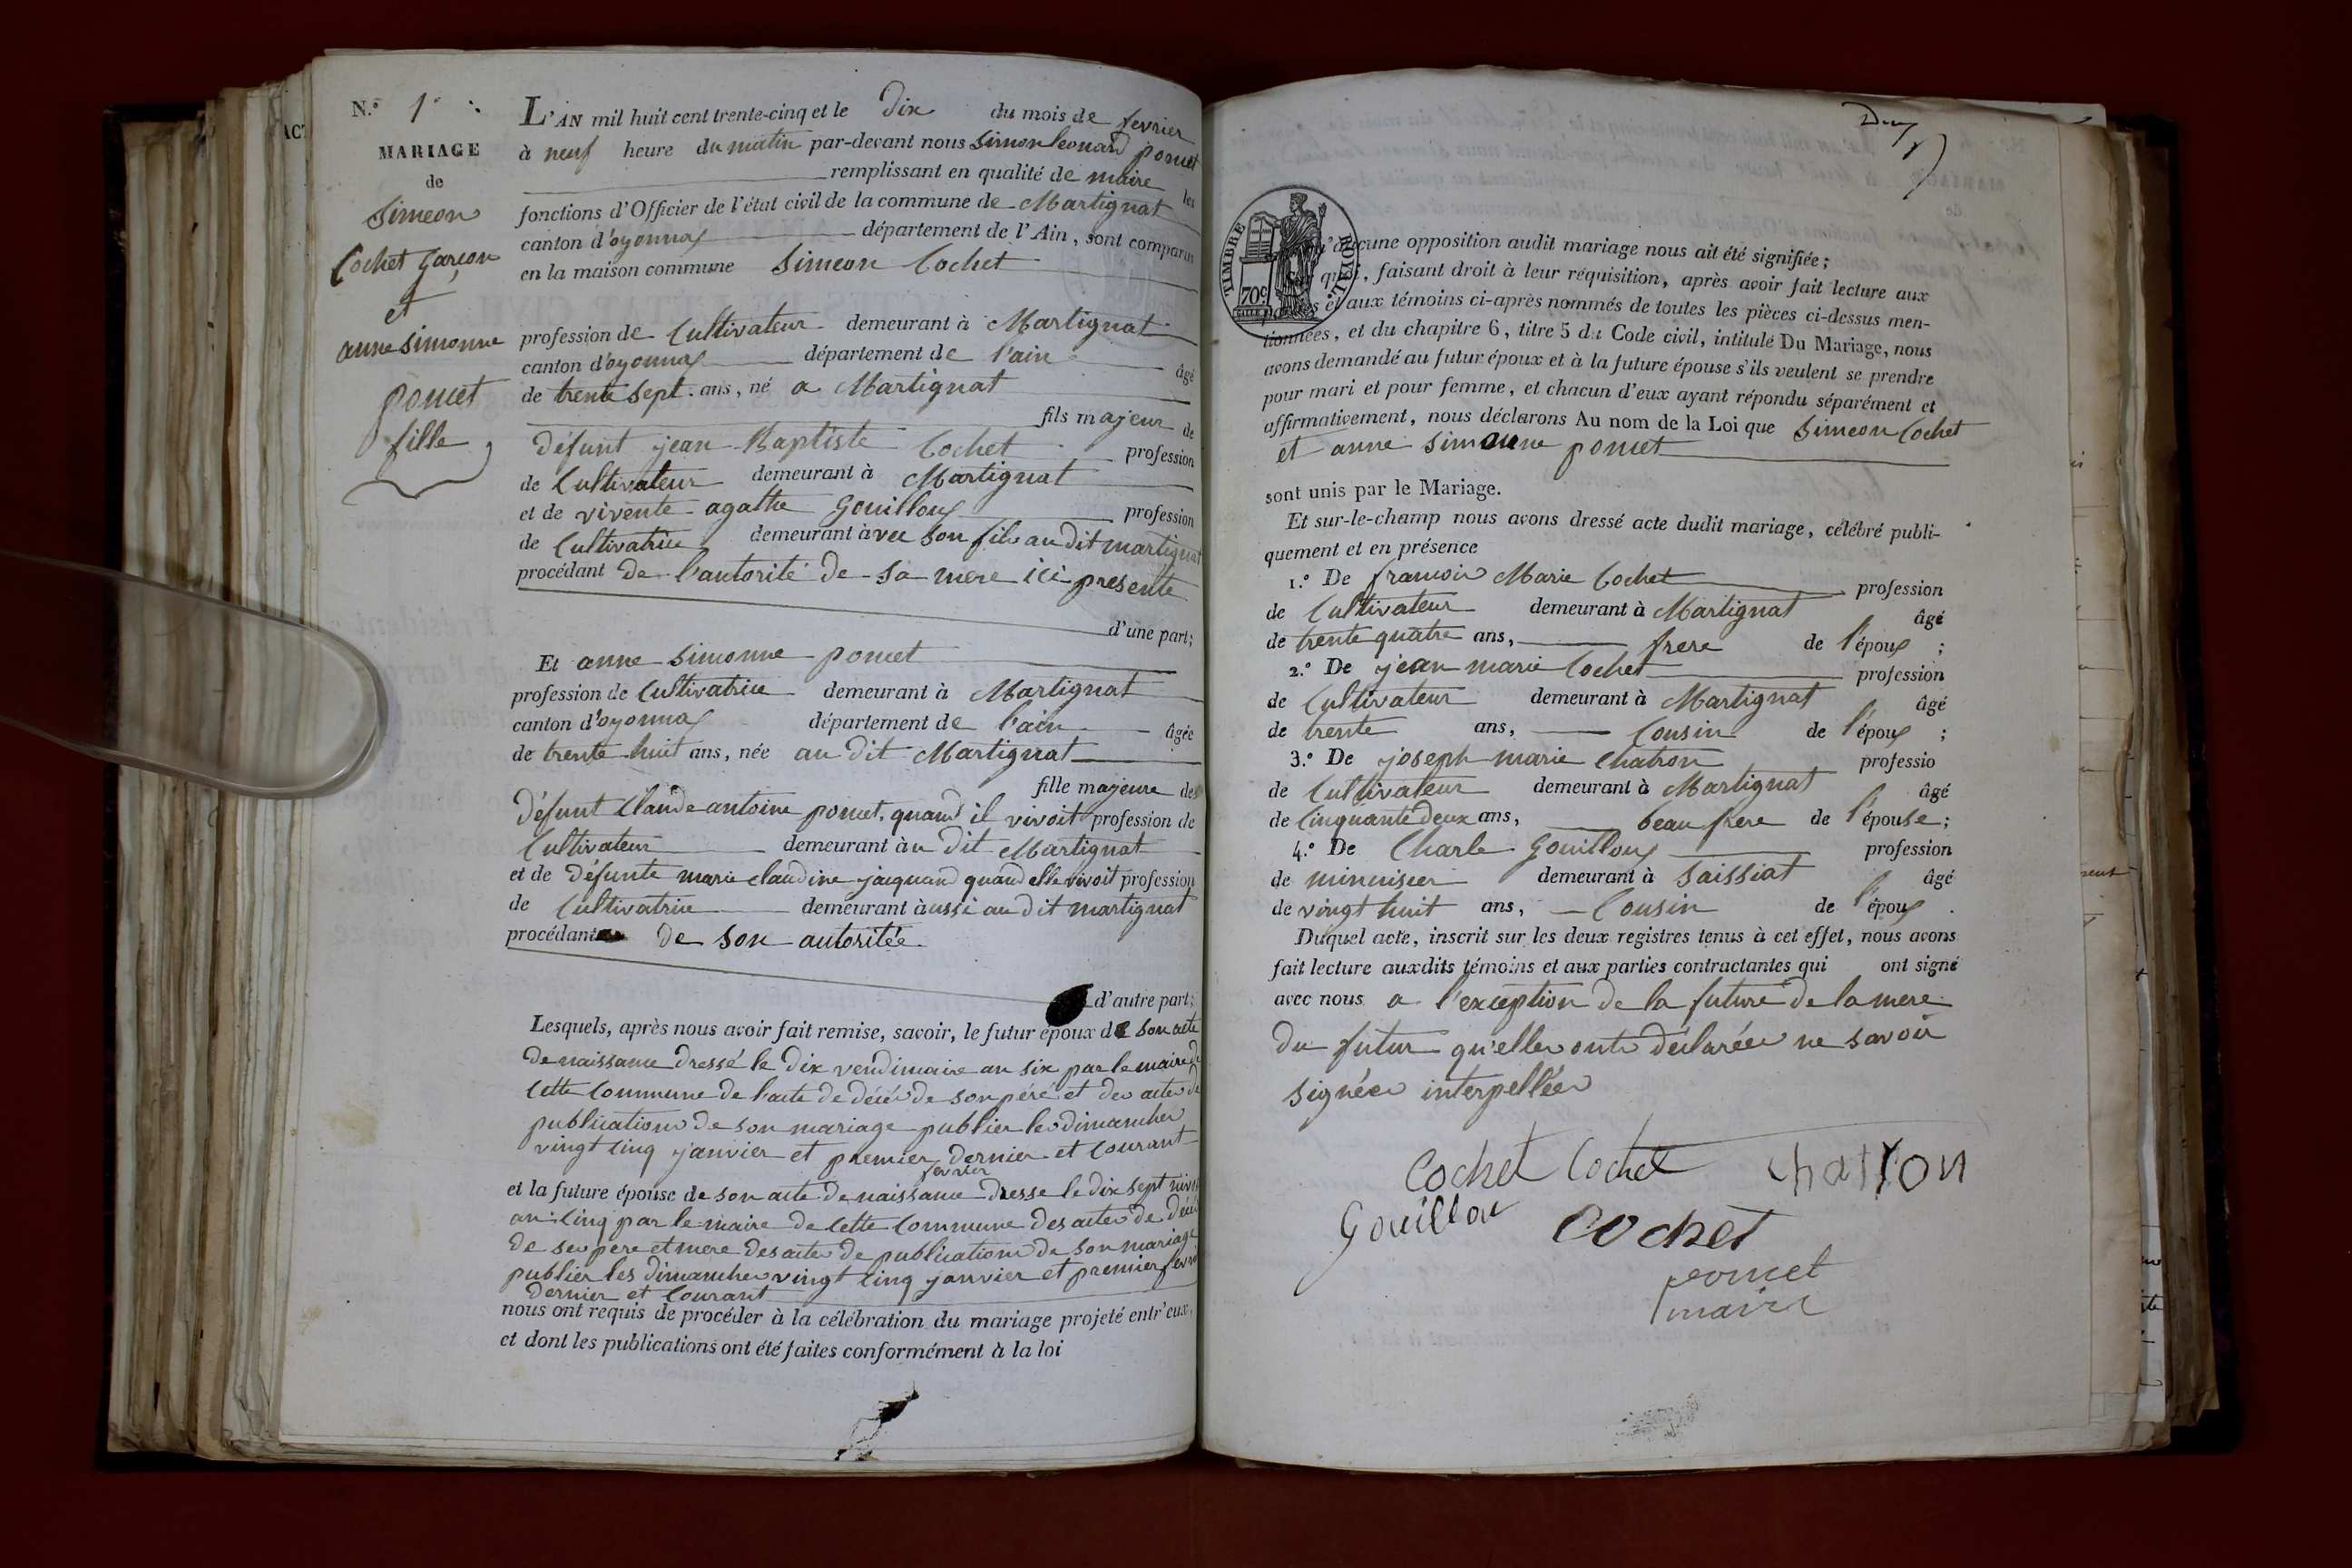 N.º 1er
MARIAGE
de
Simeon
Cochet garçon
et
anne simonne
poncet
fille
L'AN mil huit cent trente-cinq et le Dix du mois de fevrier
à neuf heure du matin par-devant nous Simon leonard poncet
remplissant en qualité de maire les
fonctions d'Officier de l'état civil de la commune de Martignat
canton d'oyonnax département de l'Ain, sont comparus
en la maison commune Simeon Cochet
profession de Cultivateur demeurant à Martignat
canton d'oyonnax département de l'ain âgé
de trente sept ans, né a Martignat
fils majeur de
défunt jean Baptiste Cochet profession
de Cultivateur demeurant à Martignat
et de vivente agathe Gouilloux profession
de Cultivatrice demeurant àvec son fils au dit martignat
procédant de l'autorité de sa mere ici presente
d'une part;
Et anne simonne poncet
profession de Cultivatrice demeurant à Martignat
canton d'oyonnax département de l'ain âgée
de trente huit ans, née au dit Martignat
fille majeure de
défunt Claude antoine poncet, quand il vivoit profession de
Cultivateur demeurant àu dit Martignat
et de défunte marie claudine jacquand quand elle vivoit profession
de Cultivatrice demeurant àussi au dit martignat
procédant de son autoritée
d'autre part;
Lesquels, après nous avoir fait remise, savoir, le futur époux de son acte
de naissance dressé le dix vendimaire an six par le maire de
cette Commune de l'acte de décés de son péré et des actes de
publications de son mariage publier les dimanches
vingt cinq janvier et premier dernier et Courant
fevrier
et la future épouse de son acte de naissance dresse le dix sept nivos
an cinq par le maire de cette Commune des actes de décés
de ses pere et mere des actes de publications de son mariage
publier les dimanches vingt cinq janvier et premier fevri
dernier et Courant
nous ont requis de procéder à la célébration du mariage projeté entr'eux,
et dont les publications ont été faites conformément à la loi
TIMBRE ROYAL
70c
qu'aucune opposition audit mariage nous ait été signifiée;
Sur quoi, faisant droit à leur réquisition, après avoir fait lecture aux
parties et aux témoins ci-après nommés de toutes les pièces ci-dessus men-
tionnées, et du chapitre 6, titre 5 du Code civil, intitulé Du Mariage, nous
avons demandé au futur époux et à la future épouse s'ils veulent se prendre
pour mari et pour femme, et chacun d'eux ayant répondu séparément et
affirmativement, nous déclarons Au nom de la Loi que Simeon Cochet
et anne simonne poncet
sont unis par le Mariage.
Et sur-le-champ nous avons dressé acte dudit mariage, célébré publi-
quement et en présence
1.º De francois Marie Cochet profession
de Cultivateur demeurant à Martignat âgé
de trente quatre ans, frere de l'époux ;
2.º De jean marie Cochet profession
de Cultivateur demeurant à Martignat âgé
de trente ans, Cousin de l'époux ;
3.º De joseph marie Chatron professio
de Cultivateur demeurant à Martignat âgé
de Cinquante deux ans, beau frere de l'épouse;
4.º De Charle Gouilloux profession
de minuisier demeurant à Saissiat âgé
de vingt huit ans, Cousin de l'époux .
Duquel acte, inscrit sur les deux registres tenus à cet effet, nous avons
fait lecture auxdits témoins et aux parties contractantes qui ont signé
avec nous a l'exception de la future de la mere
du futur qu'elles ont déclarées ne savoir
signées interpellées
Cochet Cochet Chatron
Gouillou Cochet
poncet
maire